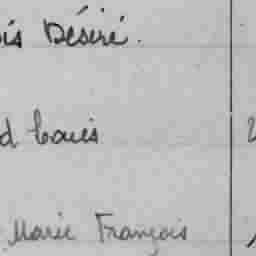 is Désiré.
d Louis
Marie François